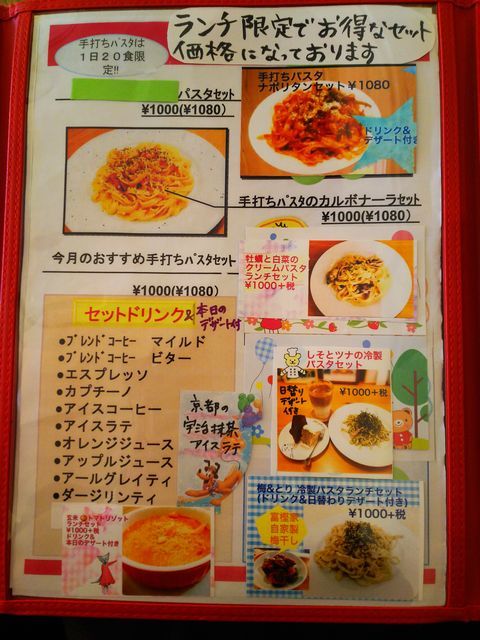 ランチ限定でお得なセット
価格になっております
手打ちパスタは
1日20食限
定!!
パスタセット
¥1000(¥1080)
手打ちパスタ
ナポリタンセット¥1080
ドリンク&
デザート付き
手打ちパスタのカルボナーラセット
¥1000(¥1080)
今月のおすすめ手打ちパスタセット
¥1000(¥1080)
牡蠣と白菜の
クリームパスタ
ランチセット
¥1000+税
セットドリンク&本日の
デザート付
●ブレンドコーヒー マイルド
●ブレンドコーヒー ビター
●エスプレッソ
●カプチーノ
●アイスコーヒー
●アイスラテ
●オレンジジュース
●アップルジュース
●アールグレイティ
●ダージリンティ
京都の
宇治抹茶
アイスラテ
しそとツナの冷製
パスタセット
¥1000+税
日替り
デザート
付き
梅&とり 冷製パスタランチセット
(ドリンク&日替わりデザート付き)
¥1000+税
富樫家
自家製
梅干し
玄米 トマトリゾット
ランチセット
¥1000+税
ドリンク&
本日のデザート付き